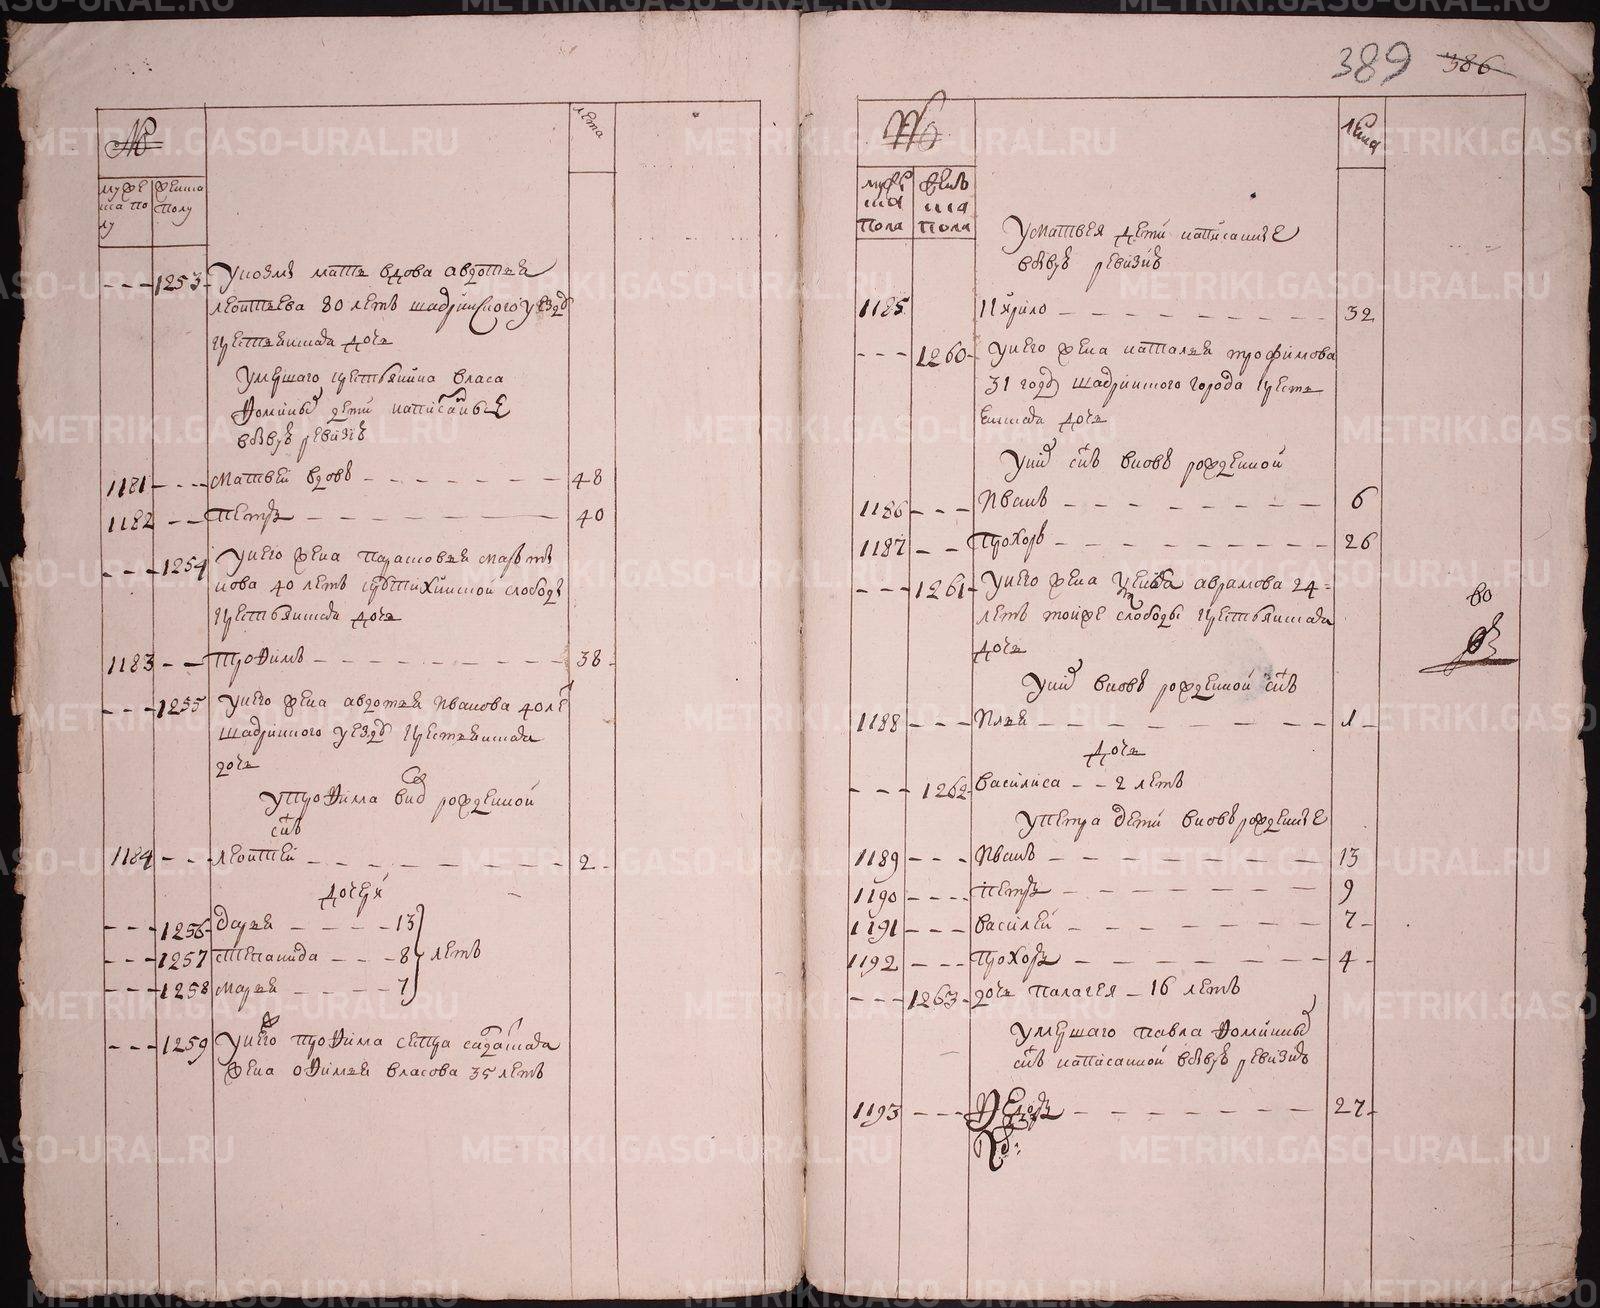 №
лета
муже
ска по
лу
женска
полу
1253 У козмы мать вдова авдотья
леонтьева 80 летъ шадринского уезда
крестьянская дочь
Умершаго крестьянина власа
Фомины дети написанные
в бывъ ревизiи
1181 Матвей вдовъ 48
1182 Петръ 40
1254 У него жена парасковья март
нова 40 летъ слободы
крестьянская дочь
1183 трофимъ 38
1255 У него жена авдотья Иванова 40 ле
шадринского уезда крестьянская
дочь
У трофима вно рожденной
снъ
1184 леонтей 2
дочери
1256 дарья 13
1257 степанида 8 летъ
1258 марья 7
1259 У него трофима сестра салдатская
жена офимья власова 35 летъ
389 386
№
лета
муже
ска
пола
женъ
ска
пола
У матвея дети написанные
в бывъ ревизiи
1185 Кирило 32
1260 У него жена наталья трофимова
31 году шадринского города кресть
янская дочь
У них снъ вновь рожденной
1186 Иванъ 6
1187 Прохоръ 26
1261 У него жена аврамова 24
летъ той же слободы крестьянская
дочь
У них вновь рожденной снъ
1188 Илья 1
дочь
1262 василиса 2 летъ
У петра дети вновь рожденные
1189 Иванъ 13
1190 петръ 9
1191 василей 7
1192 прохоръ 4
1263 дочь палагея 16 летъ
умершаго павла Фомины
снъ написанной в бывъ ревизiи
1193 Федоръ 27
во